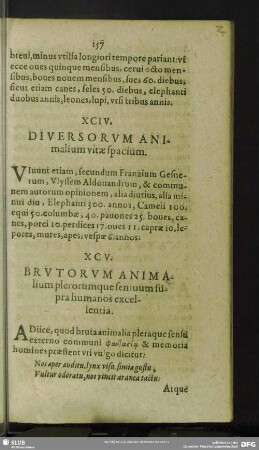 157
breui, minus vtilia longiori tempore pariant: vt
ecce oues quinque mensibus, cerui octo men-
sibus, boues nouem mensibus, sues 60. diebus,
sicut etiam canes, feles 50. diebus, elephanti
duobus annis, leones, lupi, vrsi tribus annis.
XCIV.
DIVERSORVM ANI-
malium vitæ spacium.
VIuunt etiam, secundum Franzium Gesne-
rum, Vlyssem Aldouandrum, & commu-
nem autorum opinionem, alia diutius, alia mi-
nus diu, Elephanti 300. annos, Cameli 100.
equi 50. columbæ, 40. pauones 25. boues, ca-
nes, porci 10. perdices 17. oues 11. capræ 10, le-
pores, mures, apes, vespæ 6. annos:
XCV.
BRVTORVM ANIMA-
lium plerorumque sensuum su-
pra humanos excel-
lentia.
ADiice, quod bruta animalia pleraque sensu
externo communi φαντασίᾳ & memoria
homines præstent vti vulgo dicitur:
Nos aper auditu, lynx visu, simia gustu,
Vultur odoratu, nos vincit aranea tactu:
Atque
SLUB
DFG